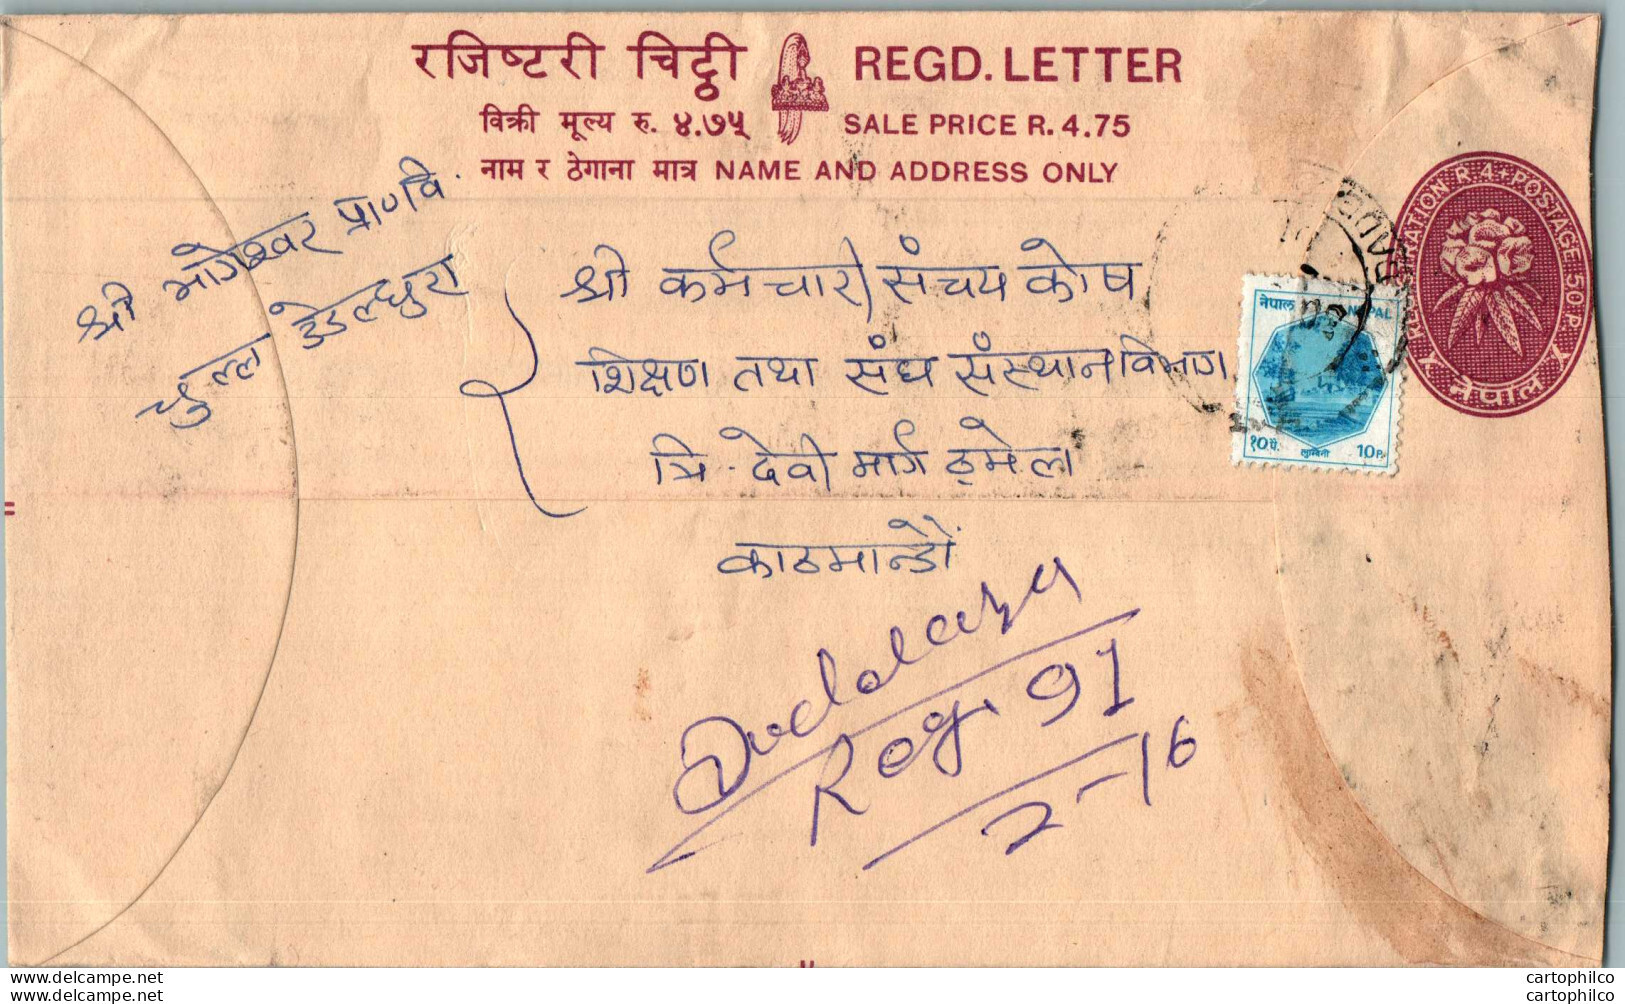 रजिष्टरी चिट्ठी REGD. LETTER
विक्री मूल्य रु. ४.७५ SALE PRICE R. 4.75
नाम र ठेगाना मात्र NAME AND ADDRESS ONLY
REGISTRATION R.4. POSTAGE 50 P.
नेपाल
श्री भागेश्वर प्रा०वि.
डडेल्धुरा
श्री कर्मचारी संचय कोष
शिक्षण तथा संघ संस्थान विभाग
त्रि-देवी मार्ग ठमेल
काठमान्डौ
नेपाल NEPAL
१० पै. लुम्बिनी 10 P.
Dadeldhura
Reg. 91
2-16
delcampe.net
delcampe.net
cartophilco
cartophilco